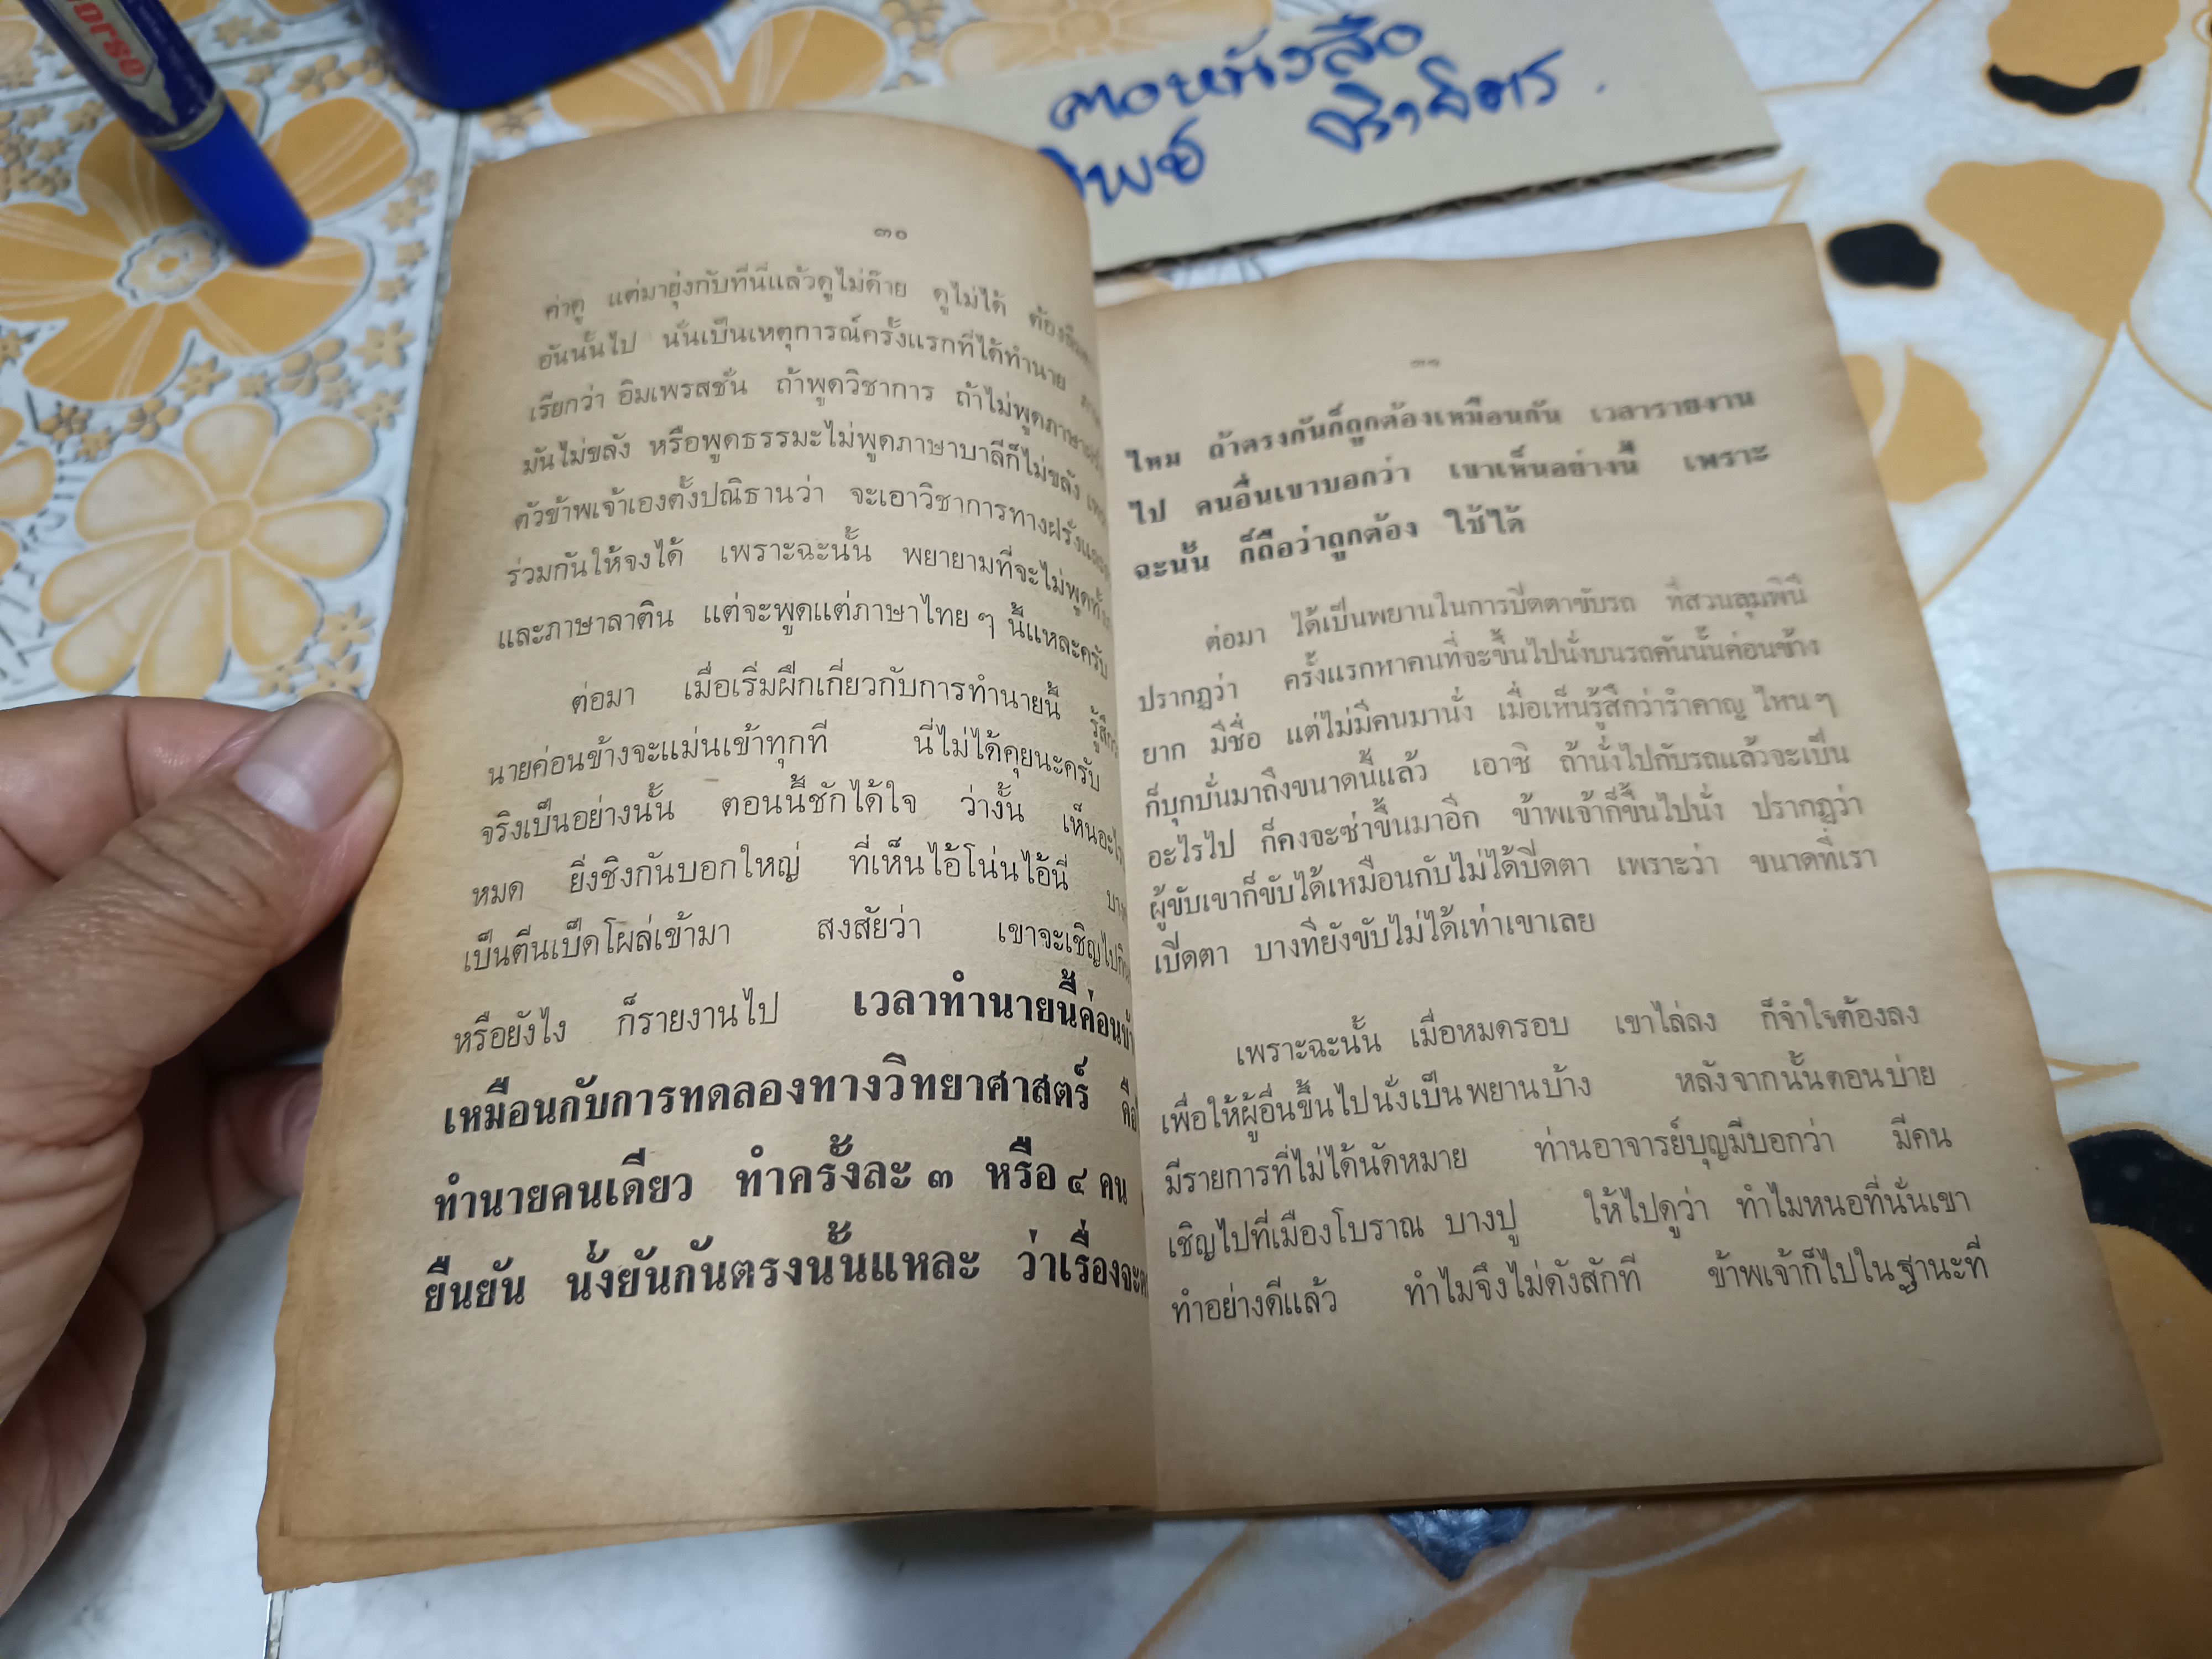 horse
คอหนังสือ
๓๐
ค่าดู แต่มายุ่งกับที่นี่แล้วดูไม่ค๊าย ดูไม่ได้
อันนั้นไป นั่นเป็นเหตุการณ์ครั้งแรกที่ได้ทำนาย
เรียกว่า อิมเพรสชั่น ถ้าพูดวิชาการ ถ้าไม่พูดภาษา
มันไม่ขลัง หรือพูดธรรมะไม่พูดภาษาบาลีก็ไม่ขลัง
ตัวข้าพเจ้าเองตั้งปณิธานว่า จะเอาวิชาการทางฝรั่ง
ร่วมกันให้จงได้ เพราะฉะนั้น พยายามที่จะไม่พูด
และภาษาลาติน แต่จะพูดแต่ภาษาไทย ๆ นี้แหละครับ
ต่อมา เมื่อเริ่มฝึกเกี่ยวกับการทำนายนี้
นายค่อนข้างจะแม่นเข้าทุกที นี่ไม่ได้คุยนะครับ
จริงเป็นอย่างนั้น ตอนนี้ชักได้ใจ ว่างั้น
หมด ยิ่งชิงกันบอกใหญ่ ที่เห็นไอ้โน่นไอ้นี่
เป็นตีนเป็ดโผล่เข้ามา สงสัยว่า เขาจะเชิญไป
หรือยังไง ก็รายงานไป เวลาทำนายนี้
เหมือนกับการทดลองทางวิทยาศาสตร์
ทำนายคนเดียว ทำครั้งละ ๓ หรือ ๔ คน
ยืนยัน นั่งยันกันตรงนั้นแหละ ว่าเรื่อง
๓๑
ไหม ถ้าตรงกันก็ถูกต้องเหมือนกัน เวลารายงาน
ไป คนอื่นเขาบอกว่า เขาเห็นอย่างนี้ เพราะ
ฉะนั้น ก็ถือว่าถูกต้อง ใช้ได้
ต่อมา ได้เป็นพยานในการปิดตาขับรถ ที่สวนลุมพินี
ปรากฏว่า ครั้งแรกหาคนที่จะขึ้นไปนั่งบนรถคันนั้นค่อนข้าง
ยาก มีชื่อ แต่ไม่มีคนมานั่ง เมื่อเห็นรู้สึกว่ารำคาญ ไหน ๆ
ก็บุกบั่นมาถึงขนาดนี้แล้ว เอาซิ ถ้านั่งไปกับรถแล้วจะเป็น
อะไรไป ก็คงจะซ่าขึ้นมาอีก ข้าพเจ้าก็ขึ้นไปนั่ง ปรากฏว่า
ผู้ขับเขาก็ขับได้เหมือนกับไม่ได้ปิดตา เพราะว่า ขนาดที่เรา
เปิดตา บางทียังขับไม่ได้เท่าเขาเลย
เพราะฉะนั้น เมื่อหมดรอบ เขาไล่ลง ก็จำใจต้องลง
เพื่อให้ผู้อื่นขึ้นไปนั่งเป็นพยานบ้าง หลังจากนั้นตอนบ่าย
มีรายการที่ไม่ได้นัดหมาย ท่านอาจารย์บุญมีบอกว่า มีคน
เชิญไปที่เมืองโบราณ บางปู ให้ไปดูว่า ทำไมหนอที่นั่นเขา
ทำอย่างดีแล้ว ทำไมจึงไม่ดังสักที ข้าพเจ้าก็ไปในฐานะที่